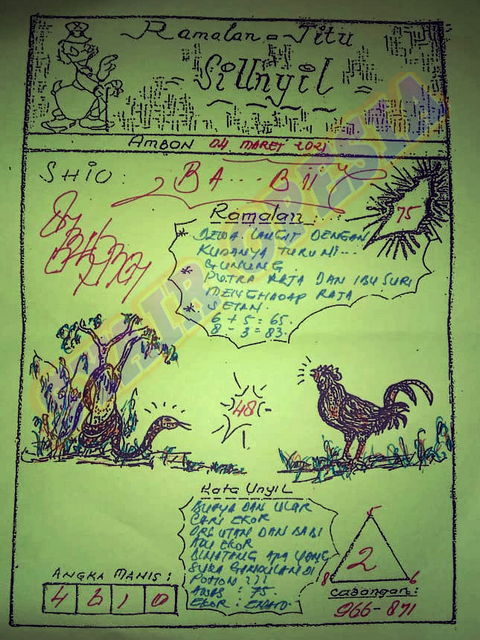 Ramalan = Jitu
Si Unyil
AMBON 04 MARET 2021
SHIO: BA... Bii"
75
Ramalan:
* DEWA LANGIT DENGAN
KUDANYA TURUNI...
GUNUNG.
* PUTRA RAJA DAN IBU SURI
MENGHADAP RAJA
* SETAN.
6 + 5 = 65.
8 - 3 = 83.
48
Kata Unyil
BUAYA DAN ULAR
CARI EKOR
ORG UTAN DAN BABI
ADU EKOR
BINATANG APA YANG
SUKA
POHON ???
: 75.
EKOR :
ANGKA MANIS:
4 6 1 0
5
2
8 6
Cadangan:
966 - 871